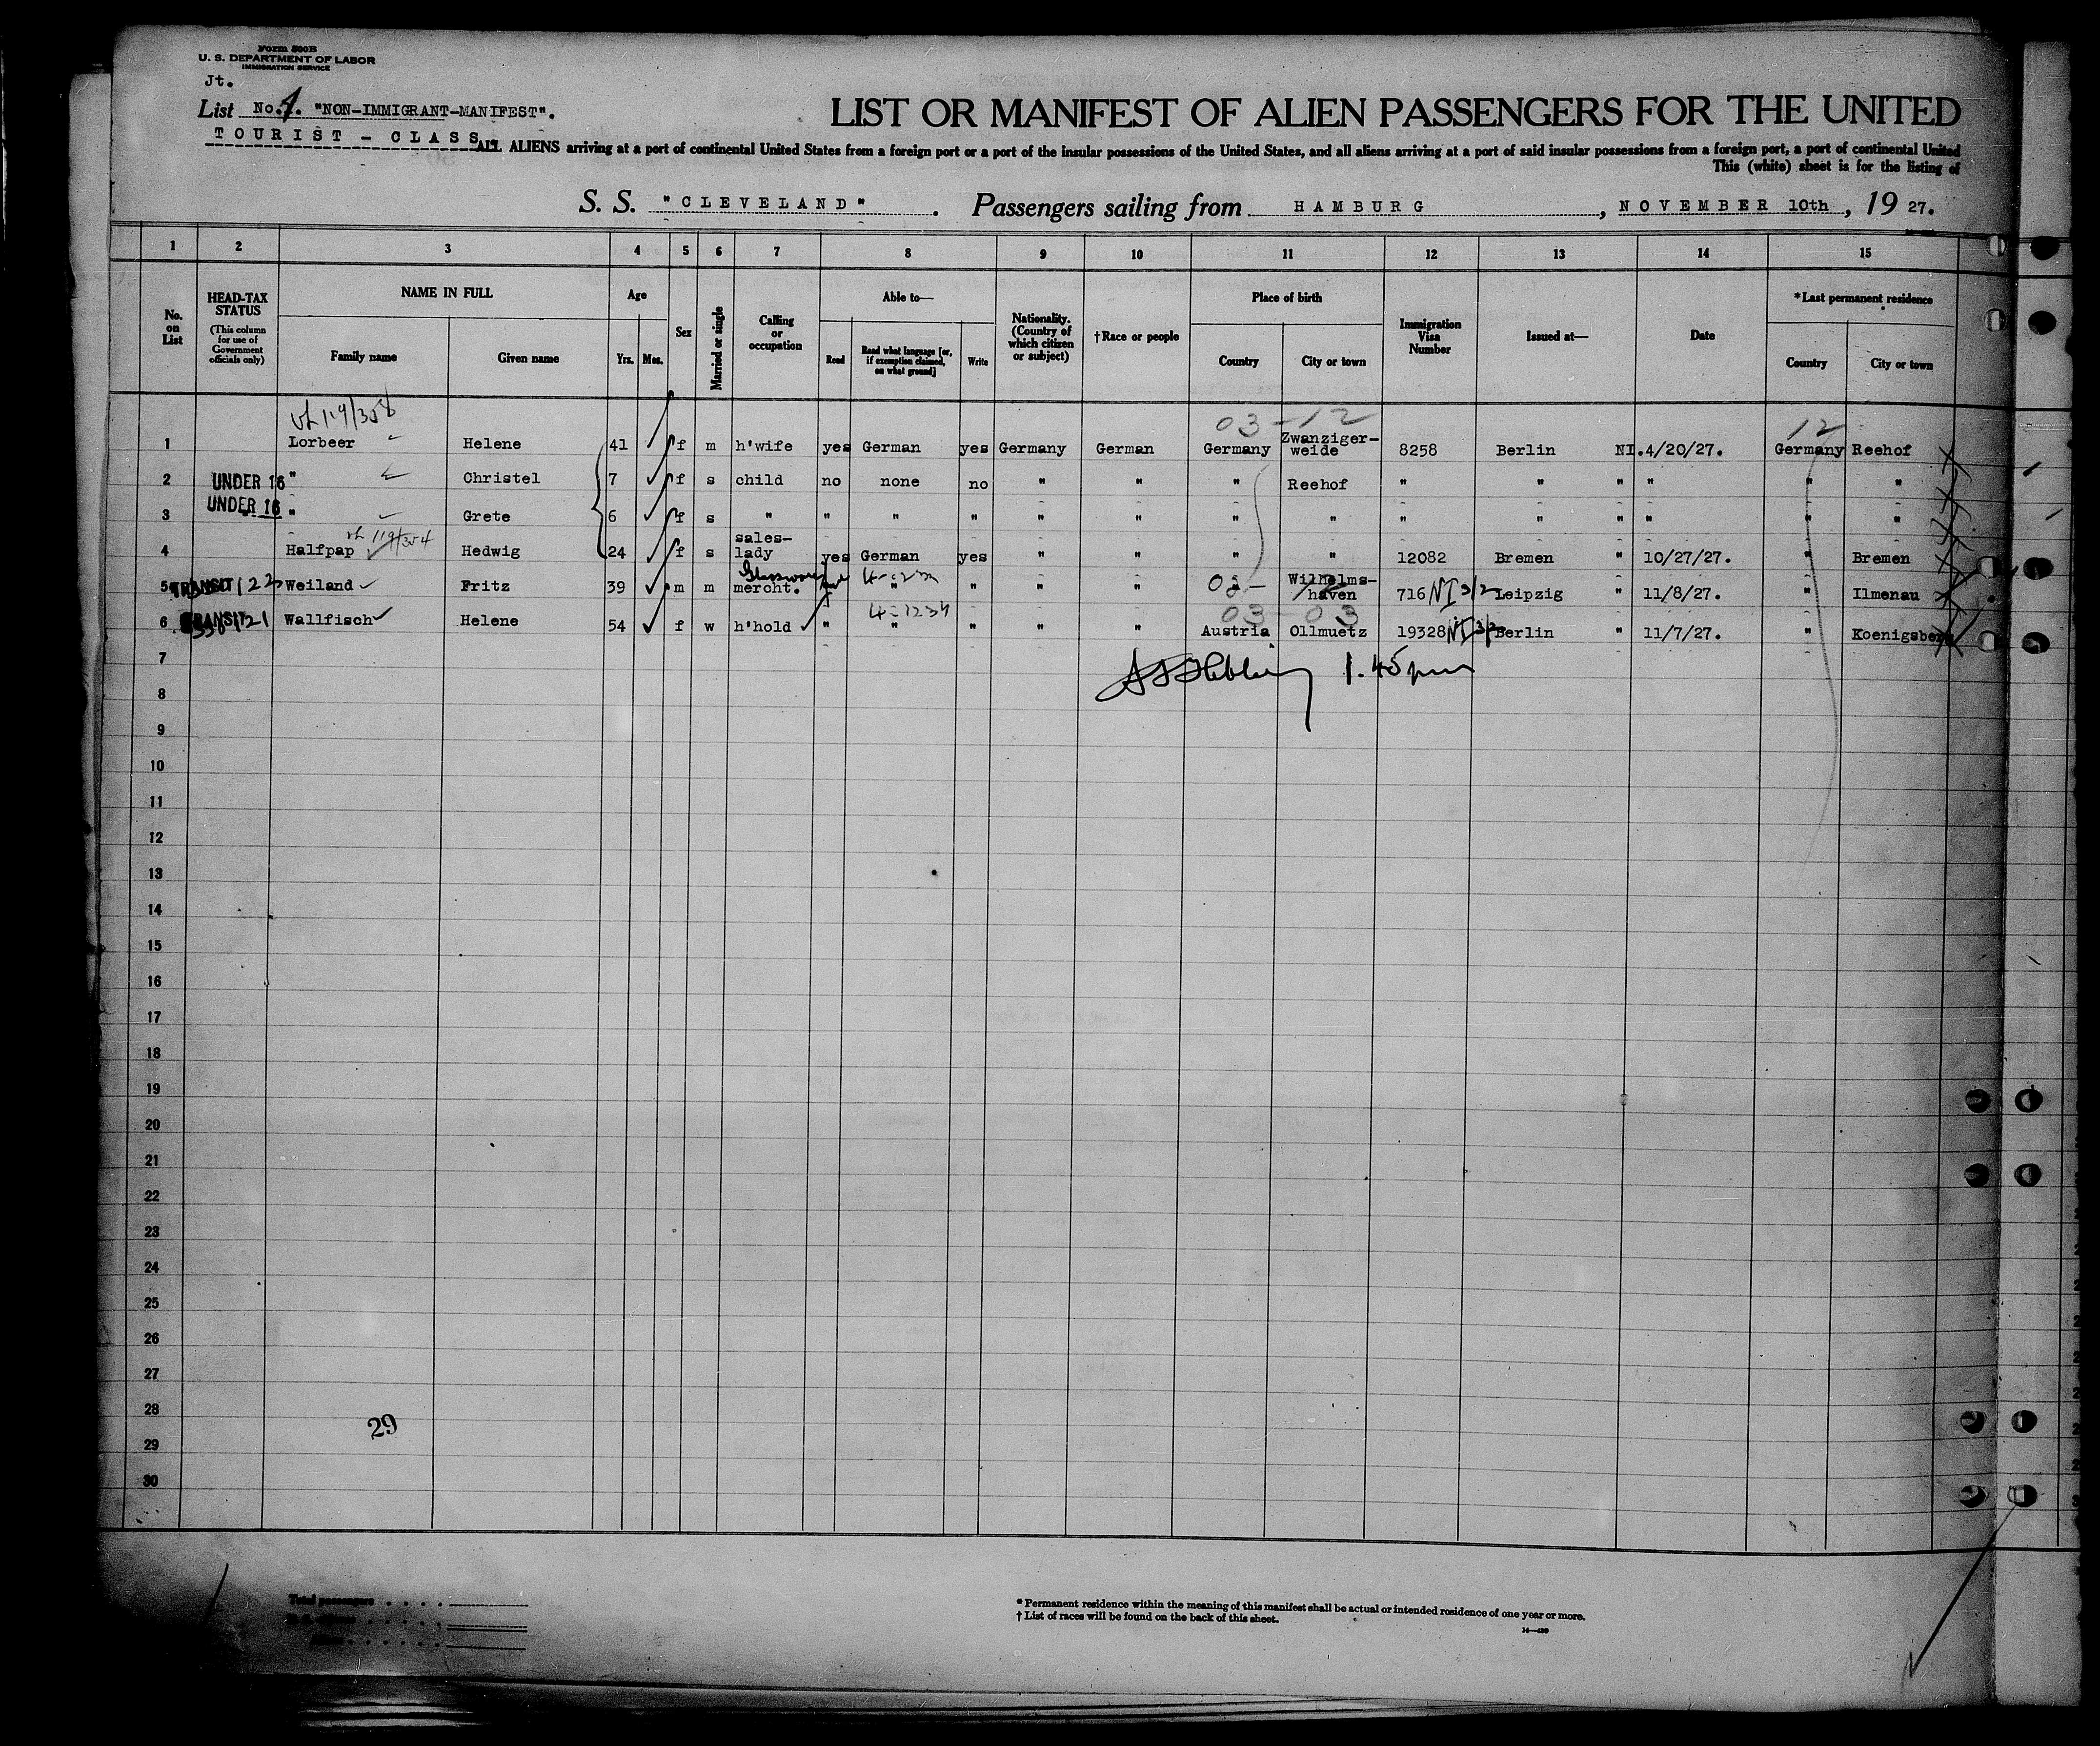 Form 500B
U. S. DEPARTMENT OF LABOR
IMMIGRATION SERVICE
Jt.
List No. 1. "NON-IMMIGRANT-MANIFEST".
TOURIST - CLASS
LIST OR MANIFEST OF ALIEN PASSENGERS FOR THE UNITED
ALL ALIENS arriving at a port of continental United States from a foreign port or a port of the insular possessions of the United States, and all aliens arriving at a port of said insular possessions from a foreign port, a port of continental United
This (white) sheet is for the listing of
S. S. "CLEVELAND". Passengers sailing from HAMBURG, NOVEMBER 10th, 19 27.
1 2 3 4 5 6 7 8 9 10 11 12 13 14 15
No. on List
HEAD-TAX STATUS
(This column for use of Government officials only)
NAME IN FULL
Family name Given name
Age
Yrs. Mos.
Sex
Married or single
Calling or occupation
Able to—
Read Read what language [or, if exemption claimed, on what ground] Write
Nationality. (Country of which citizen or subject)
†Race or people
Place of birth
Country City or town
Immigration Visa Number
Issued at—
Date
*Last permanent residence
Country City or town
03-12 12
1 Lorbeer Helene 41 f m h'wife yes German yes Germany German Germany Zwanziger-weide 8258 Berlin NI. 4/20/27. Germany Reehof
2 UNDER 16 " Christel 7 f s child no none no " " " Reehof " " " " " "
3 UNDER 16 " Grete 6 f s " " " " " " " " " " " " " "
119/354
4 Halfpap Hedwig 24 f s sales-lady yes German yes " " " " 12082 Bremen " 10/27/27. " Bremen
5 TRANSIT 122 Weiland Fritz 39 m m Glassware mercht. " " " " Wilhelms-haven 716 NI 3/2 Leipzig " 11/8/27. " Ilmenau
03-03
6 TRANSIT 121 Wallfisch Helene 54 f w h'hold " " " " " Austria Ollmuetz 19328 NI 3/2 Berlin " 11/7/27. " Koenigsberg
1.45 pm
7
8
9
10
11
12
13
14
15
16
17
18
19
20
21
22
23
24
25
26
27
28
29
29
30
Total passengers
* Permanent residence within the meaning of this manifest shall be actual or intended residence of one year or more.
† List of races will be found on the back of this sheet.